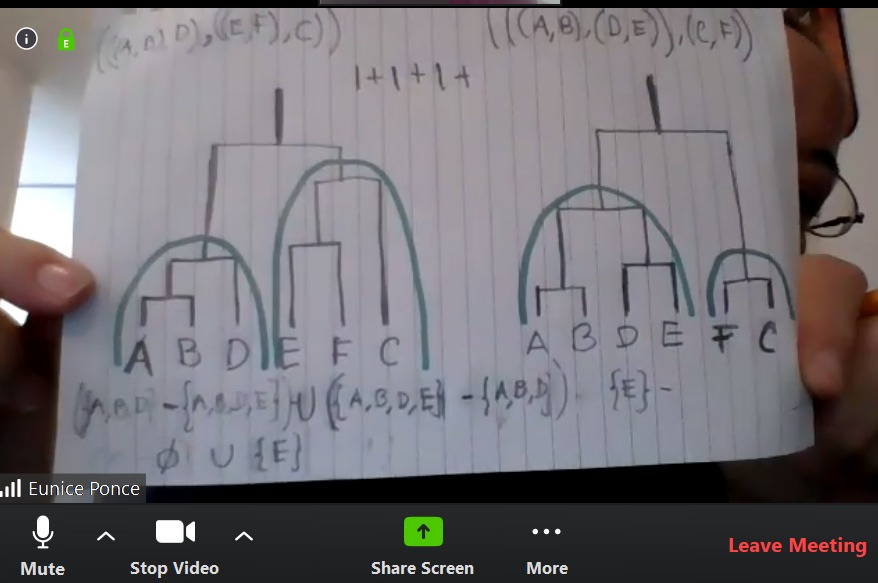 E
((A,B) D), ((E,F), C))
(((A,B),(D,E)),(C,F))
1+1+1+
A B D E F C
A B D E F C
({A,B,D} - {A,B,D,E}) U ({A,B,D,E} - {A,B,D}) {E} -
∅ U {E}
Eunice Ponce
Mute
Stop Video
Share Screen
More
Leave Meeting